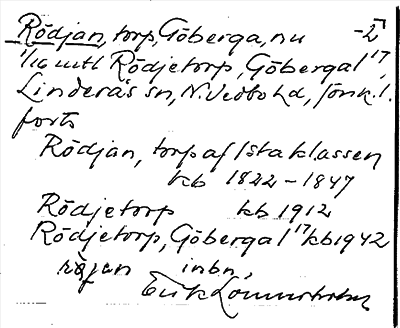 Rödjan, torp, Göberga, nu -2
1/16 mtl Rödjetorp, Göberga 1^17,
Linderås sn, N. Vedbo hd, Jönk. l.
forts
Rödjan, torp af 1sta klassen
kb 1822-1847
Rödjetorp kb 1912
Rödjetorp, Göberga 1^17 kb 1942
inbn,
Erik